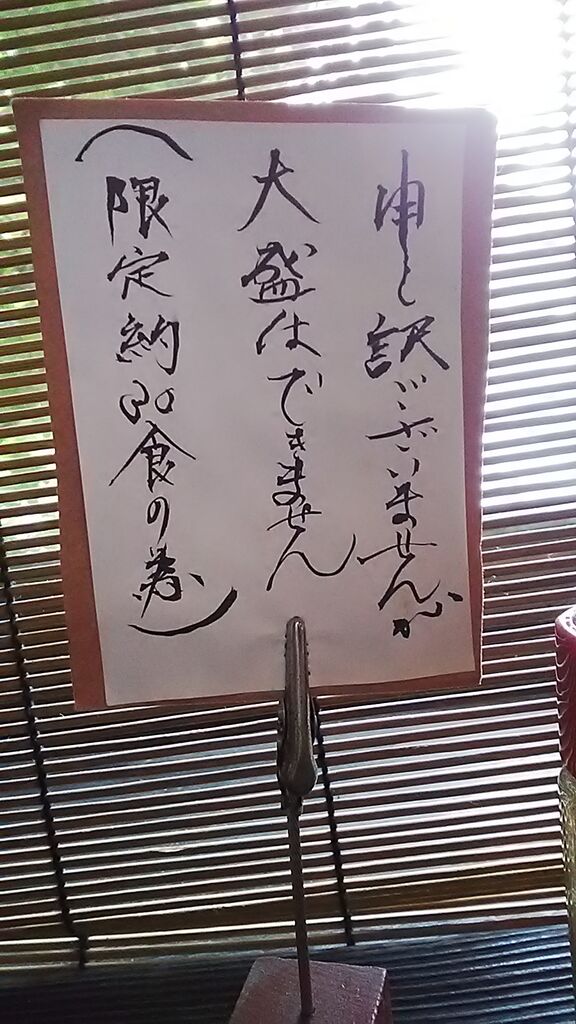 申し訳ございませんが
大盛はできません
(限定約30食の為)